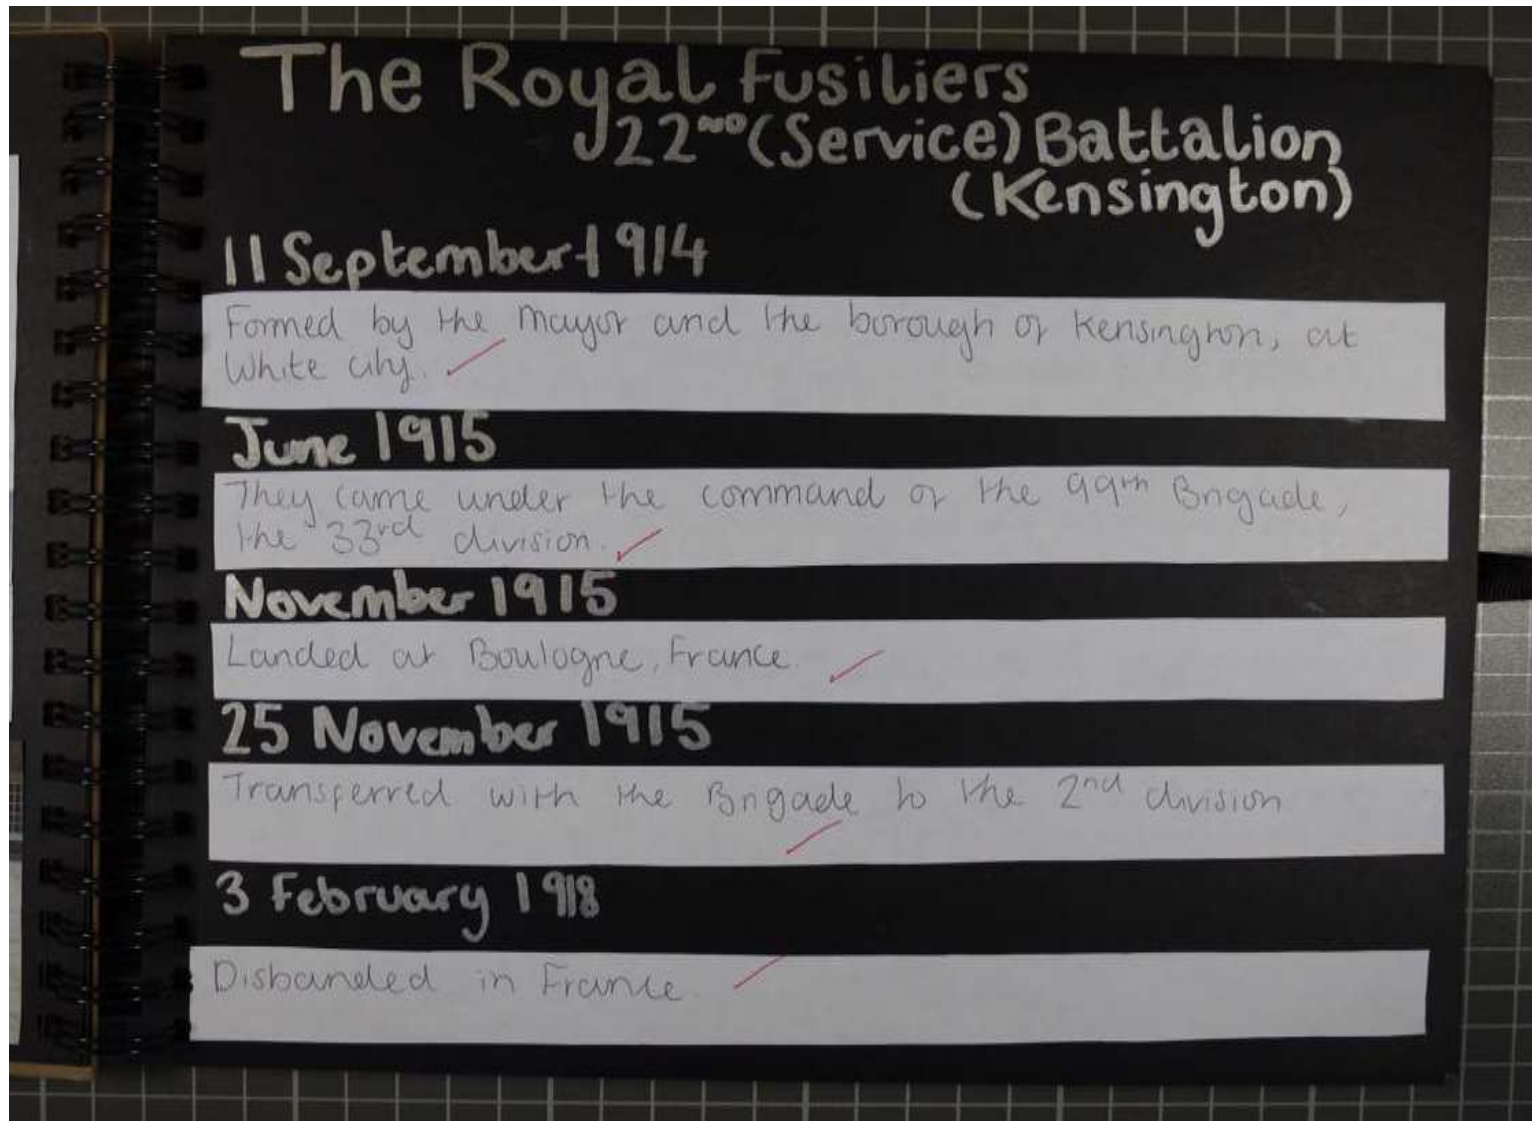 The Royal Fusiliers
22ND (Service) Battalion
(Kensington)
11 September 1914
Formed by the Mayor and the borough of Kensington, at
White city.
June 1915
They came under the command of the 99th Brigade,
the 33rd division.
November 1915
Landed at Boulogne, France.
25 November 1915
Transferred with the Brigade to the 2nd division
3 February 1918
Disbanded in France.